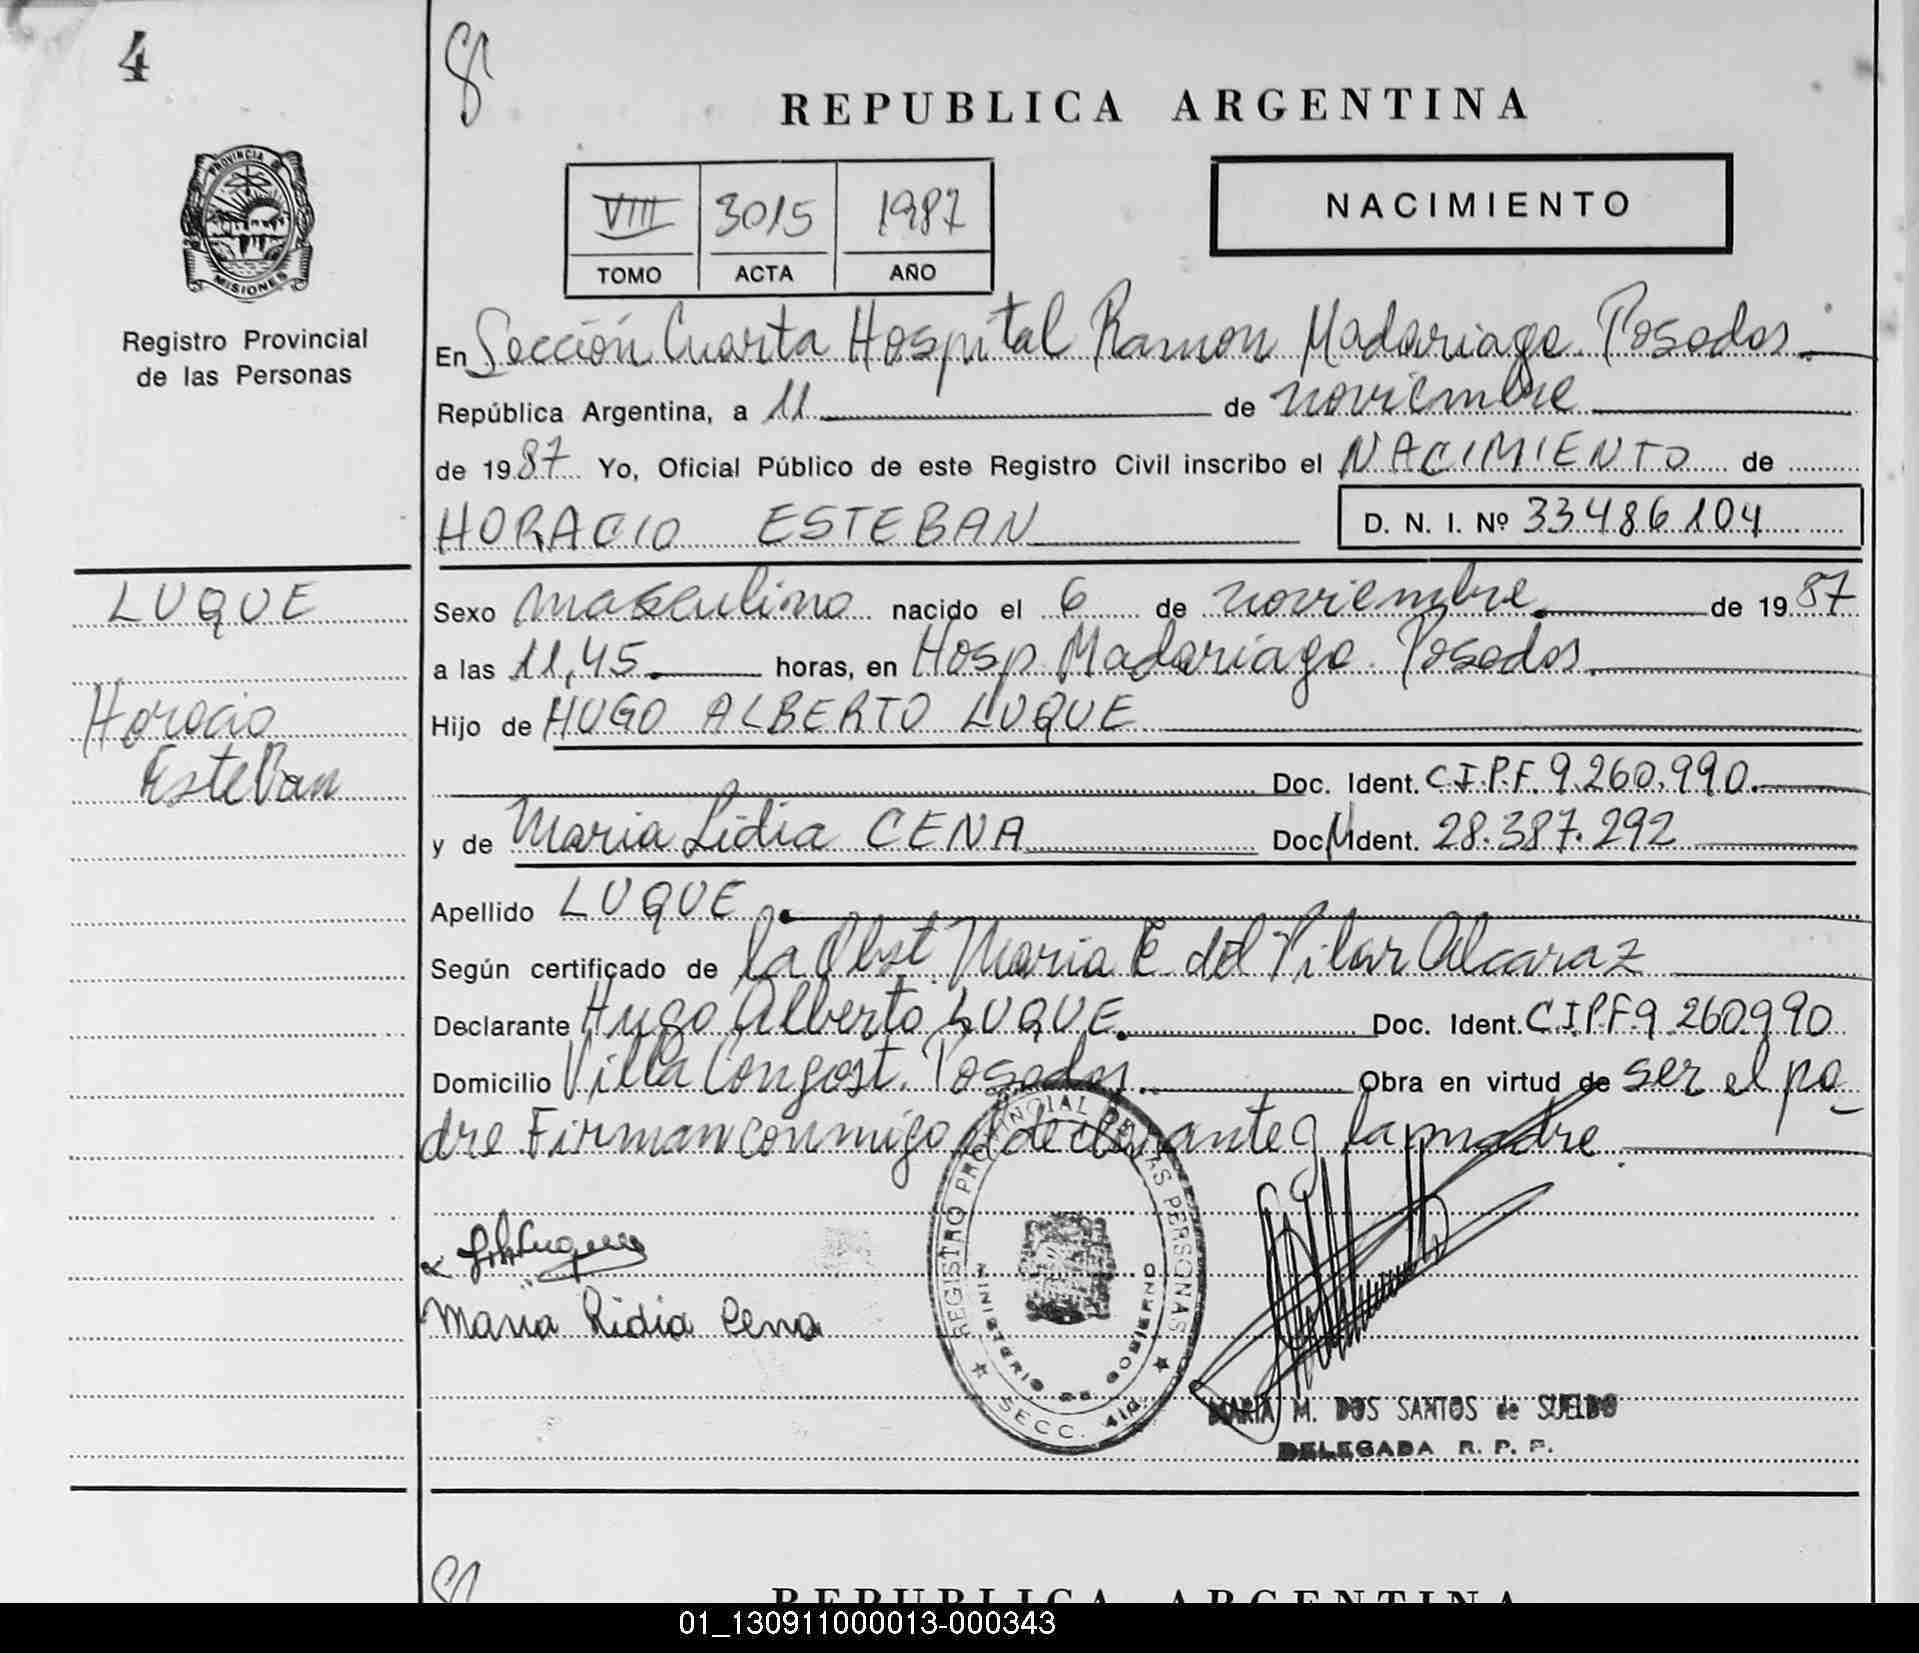 4
REPUBLICA ARGENTINA
PROVINCIA D
MISIONES
Registro Provincial
de las Personas
VIII 3015 1987
TOMO ACTA AÑO
NACIMIENTO
En Sección Cuarta Hospital Ramon Madariaga. Posadas.
República Argentina, a 11 de noviembre
de 1987 Yo, Oficial Público de este Registro Civil inscribo el NACIMIENTO de
HORACIO ESTEBAN D. N. I. Nº 33486104
LUQUE
Horacio
Esteban
Sexo masculino nacido el 6 de noviembre de 1987
a las 11,45 horas, en Hosp. Madariaga. Posadas
Hijo de HUGO ALBERTO LUQUE
Doc. Ident. C.I.P.F. 9.260.990
y de Maria Lidia CENA Doc. Ident. 28.387.292
Apellido LUQUE
Según certificado de la Obst. Maria E del Pilar Alcaraz
Declarante Hugo Alberto LUQUE Doc. Ident. CIPF9 260990
Domicilio Villa Congost. Posadas. Obra en virtud de ser el pa-
dre. Firman conmigo el declarante y la madre
Maria Lidia Cena
REGISTRO PROVINCIAL DE LAS PERSONAS
MINISTERIO DE GOBIERNO
SECC. 4ta.
MARIA M. DOS SANTOS de SUELDO
DELEGADA R. P. P.
REPUBLICA ARGENTINA
01_130911000013-000343